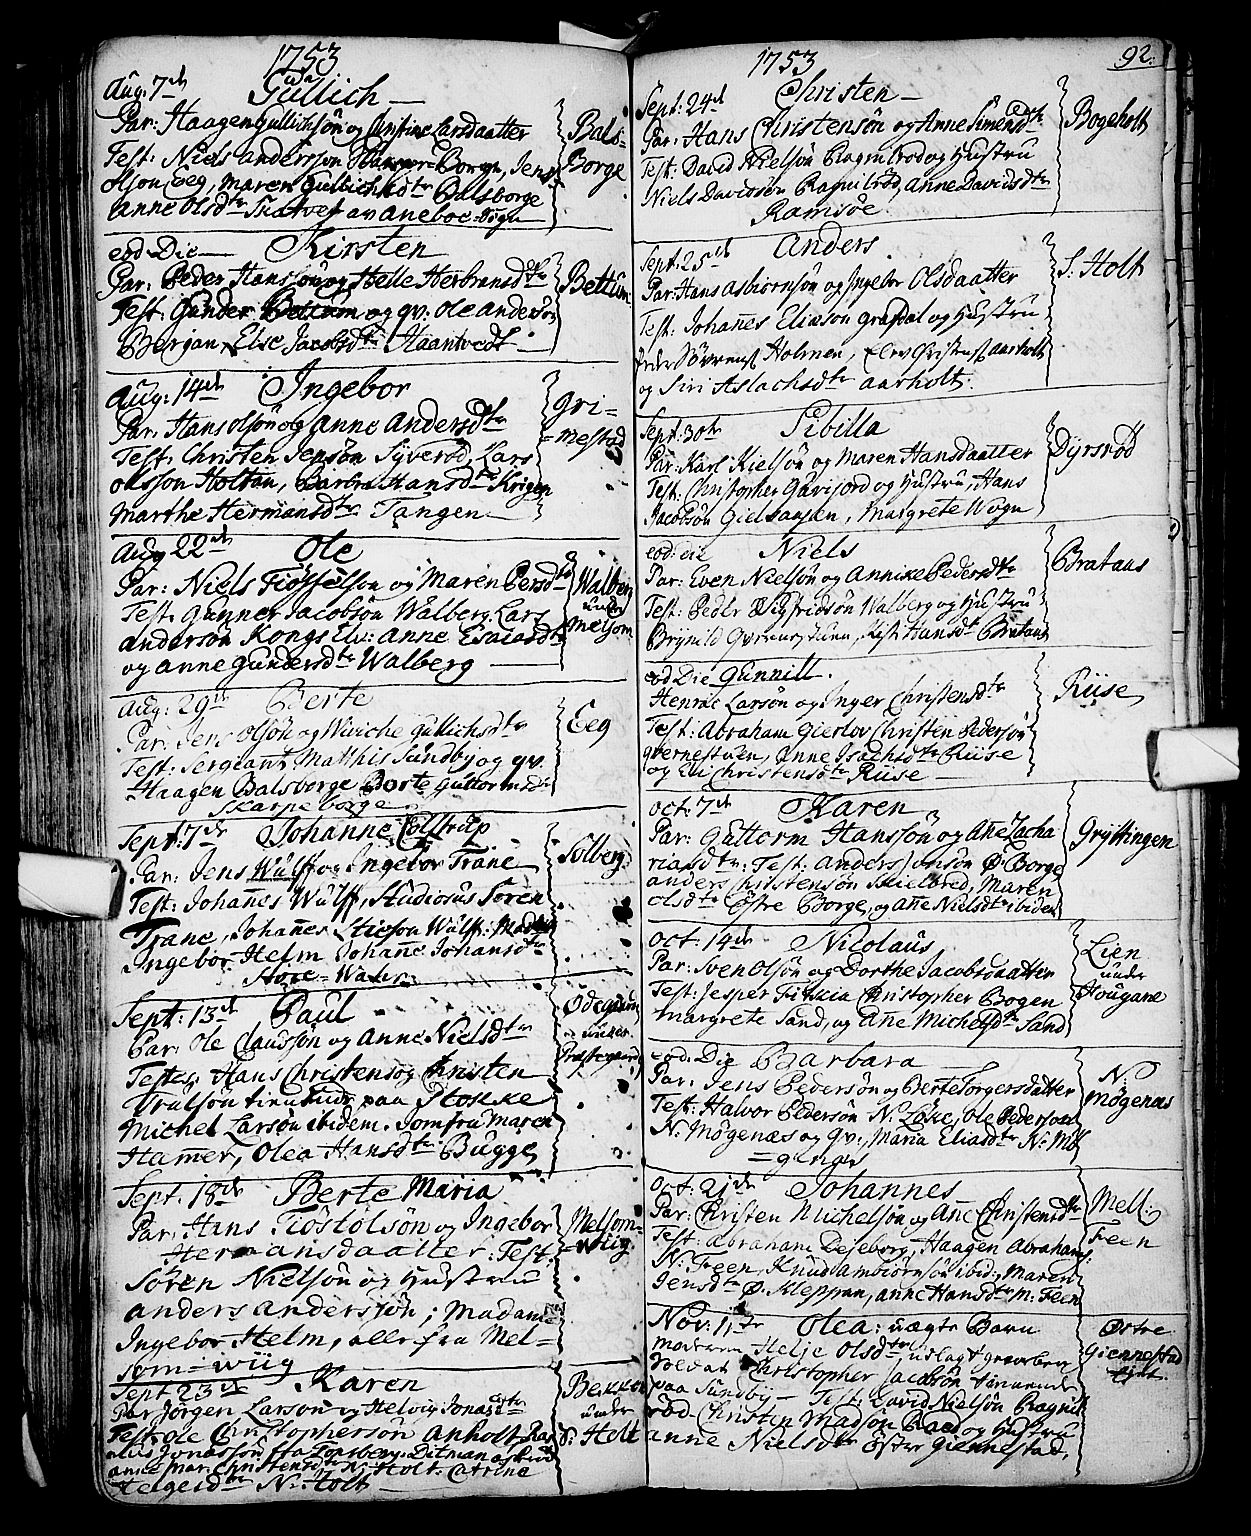 1753
Aug: 7de Gullich
Par: Haagen Gullichsøn og Christine Larsdaatter
Test: Niels Anderssøn Borge, Jens
Olsøn Eeg, Maren Gullichsdtr Balsborge
Anne Olsdtr
Bals-
Borge
eod Die Kirsten
Par: Peder Hanssøn og Helle Herbransdtr
Test: Gunder Bettum og qv: Ole Andersøn
Bergan, Else Jacobsdtr Haantvedt
Bettum
Aug: 14de Ingebor
Par: Hans Olsøn og Anne Andersdtr
Test: Christen Jensøn Syverød, Lars
Olssøn Holtan, Barbra Hansdtr Krigen
Marthe Hermansdtr Tangen
Gri=
=mestad
Aug 22de Ole
Par: Niels Fiøstelsøn og Maren Persdtr
Test: Gunner Jacobsøn Walberg, Lars
Andersøn Kongs Elv: Anne Esaiasdtr
og Anne Gundersdtr Walberg
Walberg
under
Melsom
Aug: 29de Berte
Par: Jens Olsøn og Wiviche Gullichsdtr
Test: Sergeant Matthis Sundby og qv.
Haagen Balsborge Berte Guttormsd:
Skarpeborge
Eeg
Sept: 7de Johanne Colstrup
Par: Jens Wulff og Ingebor Trane
Test: Johannes Wulff, Studiosus Søren
Trane, Johannes Wulff: Mad
Ingebor Helm Johanne Johansdtr
Solberg
Sept: 13de Paul
Par: Ole Claussøn og Anne Nielsdtr
Test: Hans Christens og Christen
Trulsøn paa Stokke
Michel Larsøn ibidem. Jomfru Maren
Hamer, Olea Hansdtr Bugge
Ødegaarden
under
Præstegaard
Sept. 18de Berte Maria
Par: Hans Fiøstølsøn og Ingebor
Hermansdaatter: Test.
Søren Nielsøn og Hustru
Anders Anderssøn; Madam
Ingebor Helm, alle fra Mel=
som=wiig
Melsom=
=wiig
Sept 23de Karen
Par Jørgen Larsøn og Helvig Jonasdtr
Test: Ole Christophersøn Anholt
Anne Mar. Christensdtr N: Holt. Catrine
Helgesdtr N: Holt
Bekken
under
S: Holt
1753
92.
Sept: 24de Christen
Par: Hans Christensøn og Anne Simensdtr
Test: David Nielsøn Ragnilrød og Hustru
Niels Davidsøn Ragnilrød, Anne Davidsdtr
Ramsøe
Bogeholt
Sept: 25de Anders
Par: Hans Asbiørnsøn og Ingebor Olsdaatter
Test: Johannes Eliasøn Grasdal og Hustru
Holmen, Elev Christens: Aarholt
og Siri Aslachsdtr Aarholt.
S: Holt
Sept: 30te Sibilla
Par: Karl Kielsøn og Maren Hansdaatter
Test: Christopher Gavrsjord og Hustru, Hans
Jacobsøn Gielsaasen, Margrete Wogn
Dyrsrød
eod: die Niels
Par: Even Nielsøn og Annike Pedersdtr
Test: Peder Sigfridsøn Walberg og Hustru
Brynild Qvernestuen, Kist Hansdt Brataas
Brataas
eod Die Gunnill.
Henric Larsøn og Inger Christensdtr
Test: Abraham Gierløv Christen Pedersøn
Qvernestuen, Anne Isachsdtr Riise
og Eli Christensdtr Riise
Riise
Oct: 7de Karen
Par: Guttorm Hanssøn og Ane Zacha
riasdtr: Test: Anders Jonsøn Ø: Borge
Anders Christensøn Skielbred, Maren
Olsdtr Østre Borge, og Ane Nielsdtr ibiden
Gryttingen
Oct: 14de Nicolaus
Par: Sven Olsøn og Dorthe Jacobsdaatter
Test: Jesper Fixia Christopher Bogen
Margrete Sand, og Ane Michelsdtr Sand
Lien
under
Hougane
eod: Die Barbara
Par: Jens Pedersøn og Berte Torgersdatter
Test: Halvor Pedersøn N: Løke, Ole Pedersøn
N: Møgenæs og qv:, Maria Eliasdtr N: Mø
=genæs
N:
Møgenæs
Oct: 21de Johannes
Par: Christen Michelsøn og Ane Christensdtr
Test: Abraham Deseborg, Haagen Abrahams:
N: Freen, Knud Ambiørnsøn ibid:, Maren
Jensdtr Ø: Kleppan, Anne Hansdtr M: Feen
Mell:
Freen
Nov: 11te Olea: uægte Barn
Moderen Helje Olsdtr, udlagt gevorben
Soldat Christopher Jacobsøn tienende
paa Sundby — Test: David Nielsøn Ragnil
rød Christen Madsøn Raae og Hustru
Anne Nielsdtr Øster Giennestad,
Østre
Giennestad